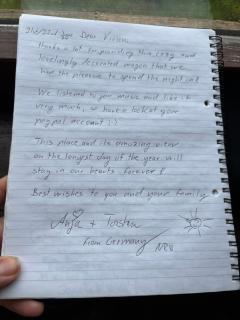 21st/22nd June Dear Vivien,
thanks a lot for providing this cozy and
lovelingly decorated wagon that we
had the pleasure to spend the night in!
We listened to your music and like it
very much, so have a look at your
paypal account :)
This place and its amazing view
on the longest day of the year will
stay in our hearts forever!
Best wishes to you and your family
Anja + Torsten
from Germany
NRW